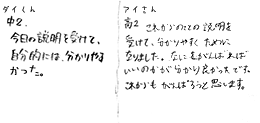 ダイくん
中2.
今日の説明を受けて、
自分的には、分かりやす
かった。
アイさん
高2 これからのことの説明を
受けて、分かりやすく ために
なりました。なにをがんばれば
いいのかが分かり良かったです。
これからも がんばろうと思います。